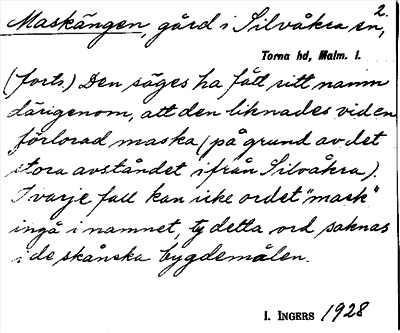 2.
Maskängen, gård i Silvåkra sn,
Torna hd, Malm. l.
(forts.) Den säges ha fått sitt namn
därigenom, att den liknades vid en
förlorad maska (på grund av det
stora avståndet ifrån Silvåkra).
I varje fall kan icke ordet "mask"
ingå i namnet, ty detta ord saknas
i de skånska bygdemålen.
I. INGERS 1928